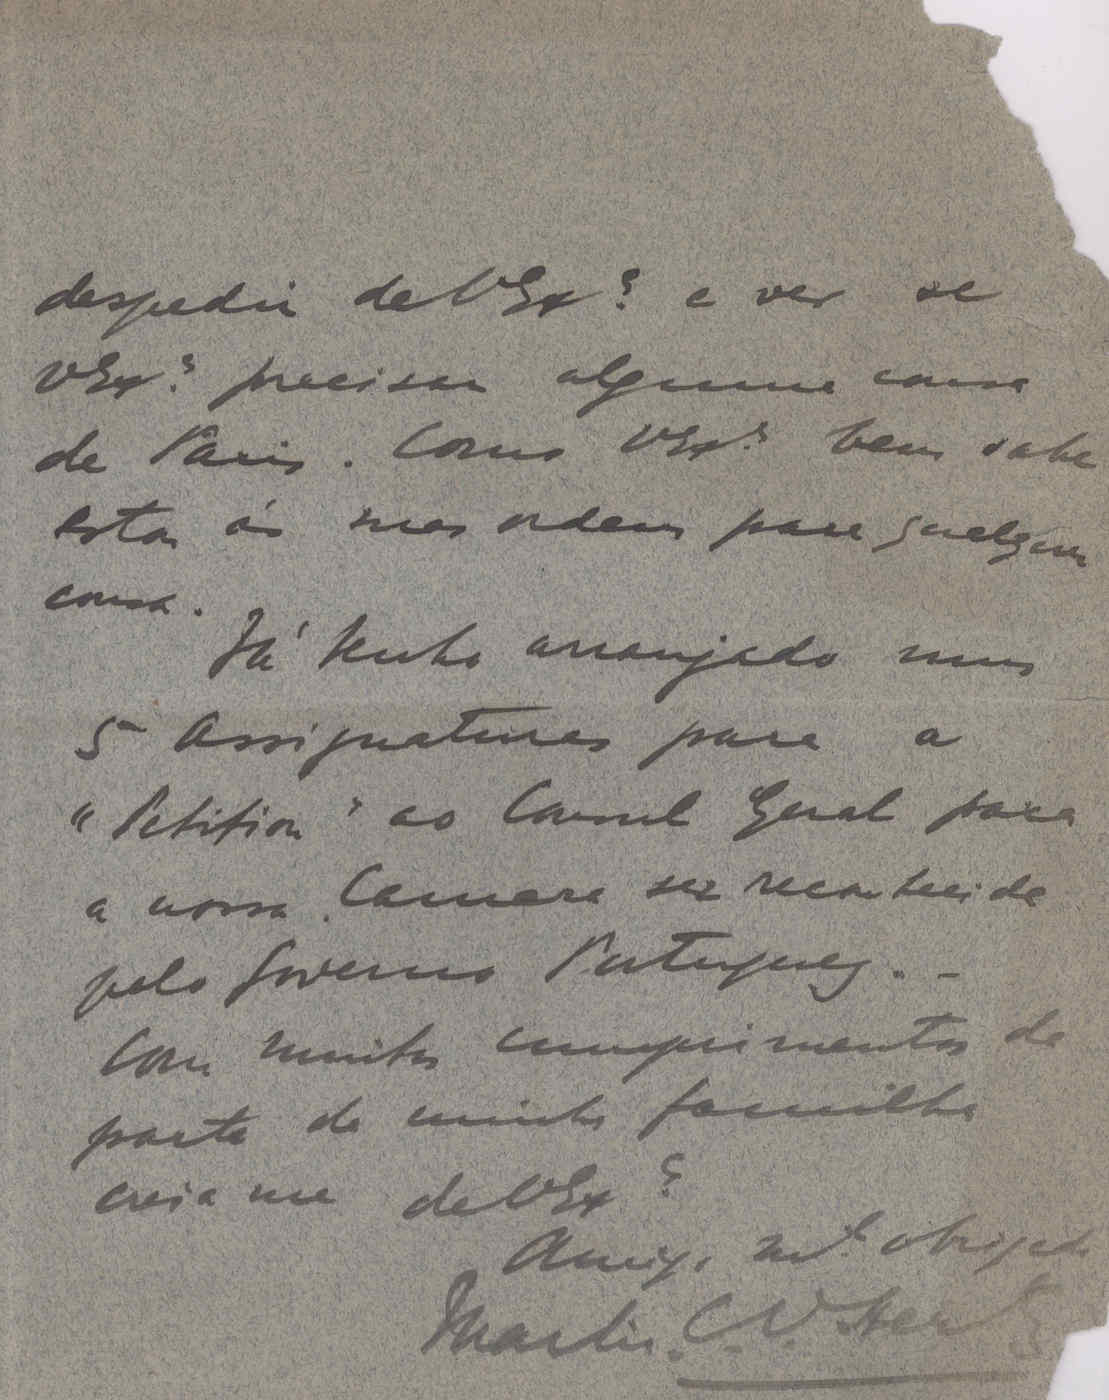 despedir de VExª e ver se
VExª precisar alguma cousa
de Paris. Como VExª bem sabe
estou ás sus ordens para qualquer
cousa.
Já tenho arranjado uns
5 Assignatures para a
"Petition" ao Consul Geral para
a nossa Camera ser reconhecida
pelo Governo Portuguez. -
Com muitos cumprimentos de
parte de minha familha
creia me de VExª
Amigo mtº obrigado
Martin C. N. Hertz